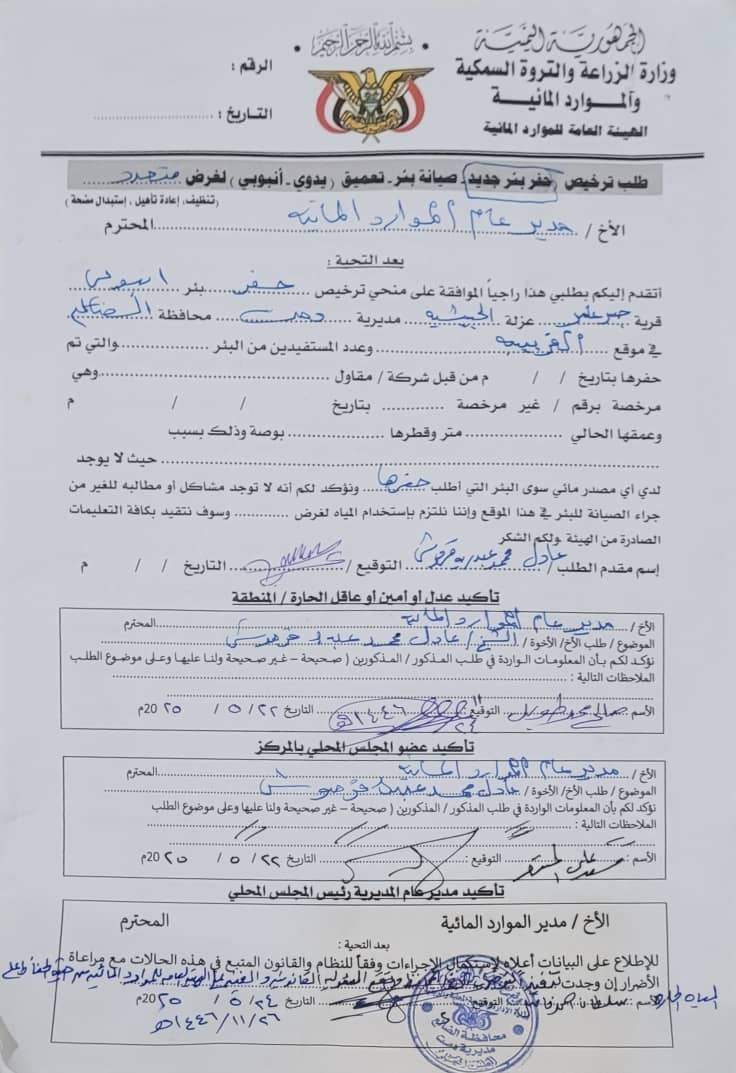 بسم الله الرحمن الرحيم
الجمهورية اليمنية
وزارة الزراعة والثروة السمكية
والموارد المائية
الهيئة العامة للموارد المائية
الرقم :
التاريخ : ....................
طلب ترخيص (حفر بئر جديد - صيانة بئر - تعميق (يدوي - أنبوبي) لغرض متعدد
(تنظيف، إعادة تأهيل، إستبدال مضخة)
الأخ / مدير عام الموارد المائية المحترم
بعد التحية :
أتقدم إليكم بطلبي هذا راجياً الموافقة على منحي ترخيص حفر بئر
قرية عزلة الحبيشية مديرية دمت محافظة الضالع
في موقع وعدد المستفيدين من البئر ............ والتي تم
حفرها بتاريخ / / م من قبل شركة / مقاول ............ وهي
مرخصة برقم / غير مرخصة ............ بتاريخ / / م
وعمقها الحالي ............ متر وقطرها ............ بوصة وذلك بسبب
............ حيث لا يوجد
لدي أي مصدر مائي سوى البئر التي أطلب حفرها ونؤكد لكم أنه لا توجد مشاكل أو مطالبه للغير من
جراء الصيانة للبئر في هذا الموقع وإننا نلتزم بإستخدام المياه لغرض ............ وسوف نتقيد بكافة التعليمات
الصادرة من الهيئة ولكم الشكر
إسم مقدم الطلب / عادل محمد عبدربه التوقيع / التاريخ / / م
تأكيد عدل أو أمين أو عاقل الحارة / المنطقة
الأخ / مدير عام الموارد المائية المحترم
الموضوع / طلب الأخ/ الأخوة / الشيخ / عادل محمد
نؤكد لكم بأن المعلومات الواردة في طلب المذكور / المذكورين ( صحيحة – غير صحيحة ولنا عليها وعلى موضوع الطلب
الملاحظات التالية : ............
الأسم : صالح محمد التوقيع : التاريخ ٢٢ / ٥ / ٢٥ 20م
١٤٤٦هـ
تأكيد عضو المجلس المحلي بالمركز
الأخ / مدير عام الموارد المائية المحترم
الموضوع / طلب الأخ/ الأخوة / عادل محمد
نؤكد لكم بأن المعلومات الواردة في طلب المذكور / المذكورين ( صحيحة – غير صحيحة ولنا عليها وعلى موضوع الطلب
الملاحظات التالية : ............
الأسم : علي التوقيع : التاريخ ٢٢ / ٥ / ٢٥ 20م
تأكيد مدير عام المديرية رئيس المجلس المحلي
الأخ / مدير الموارد المائية المحترم
بعد التحية :
للإطلاع على البيانات أعلاه لإستكمال الإجراءات وفقاً للنظام والقانون المتبع في هذه الحالات مع مراعاة
الأضرار إن وجدت
الأسم : التوقيع التاريخ ٢٤ / ٥ / ٢٥ 20م
١٤٤٦/١١/٢٦هـ
محافظة الضالع
مديرية دمت